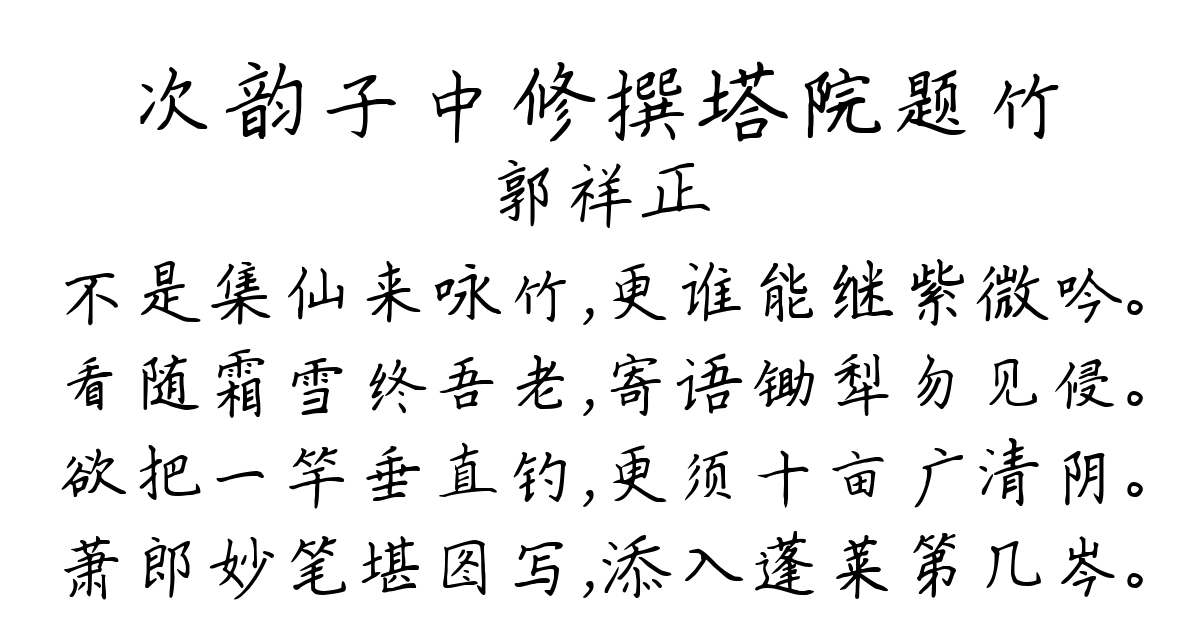 次韵子中修撰塔院题竹
郭祥正
不是集仙来咏竹,更谁能继紫微吟。
看随霜雪终吾老,寄语锄犁勿见侵。
欲把一竿垂直钓,更须十亩广清阴。
萧郎妙笔堪图写,添入蓬莱第几岑。